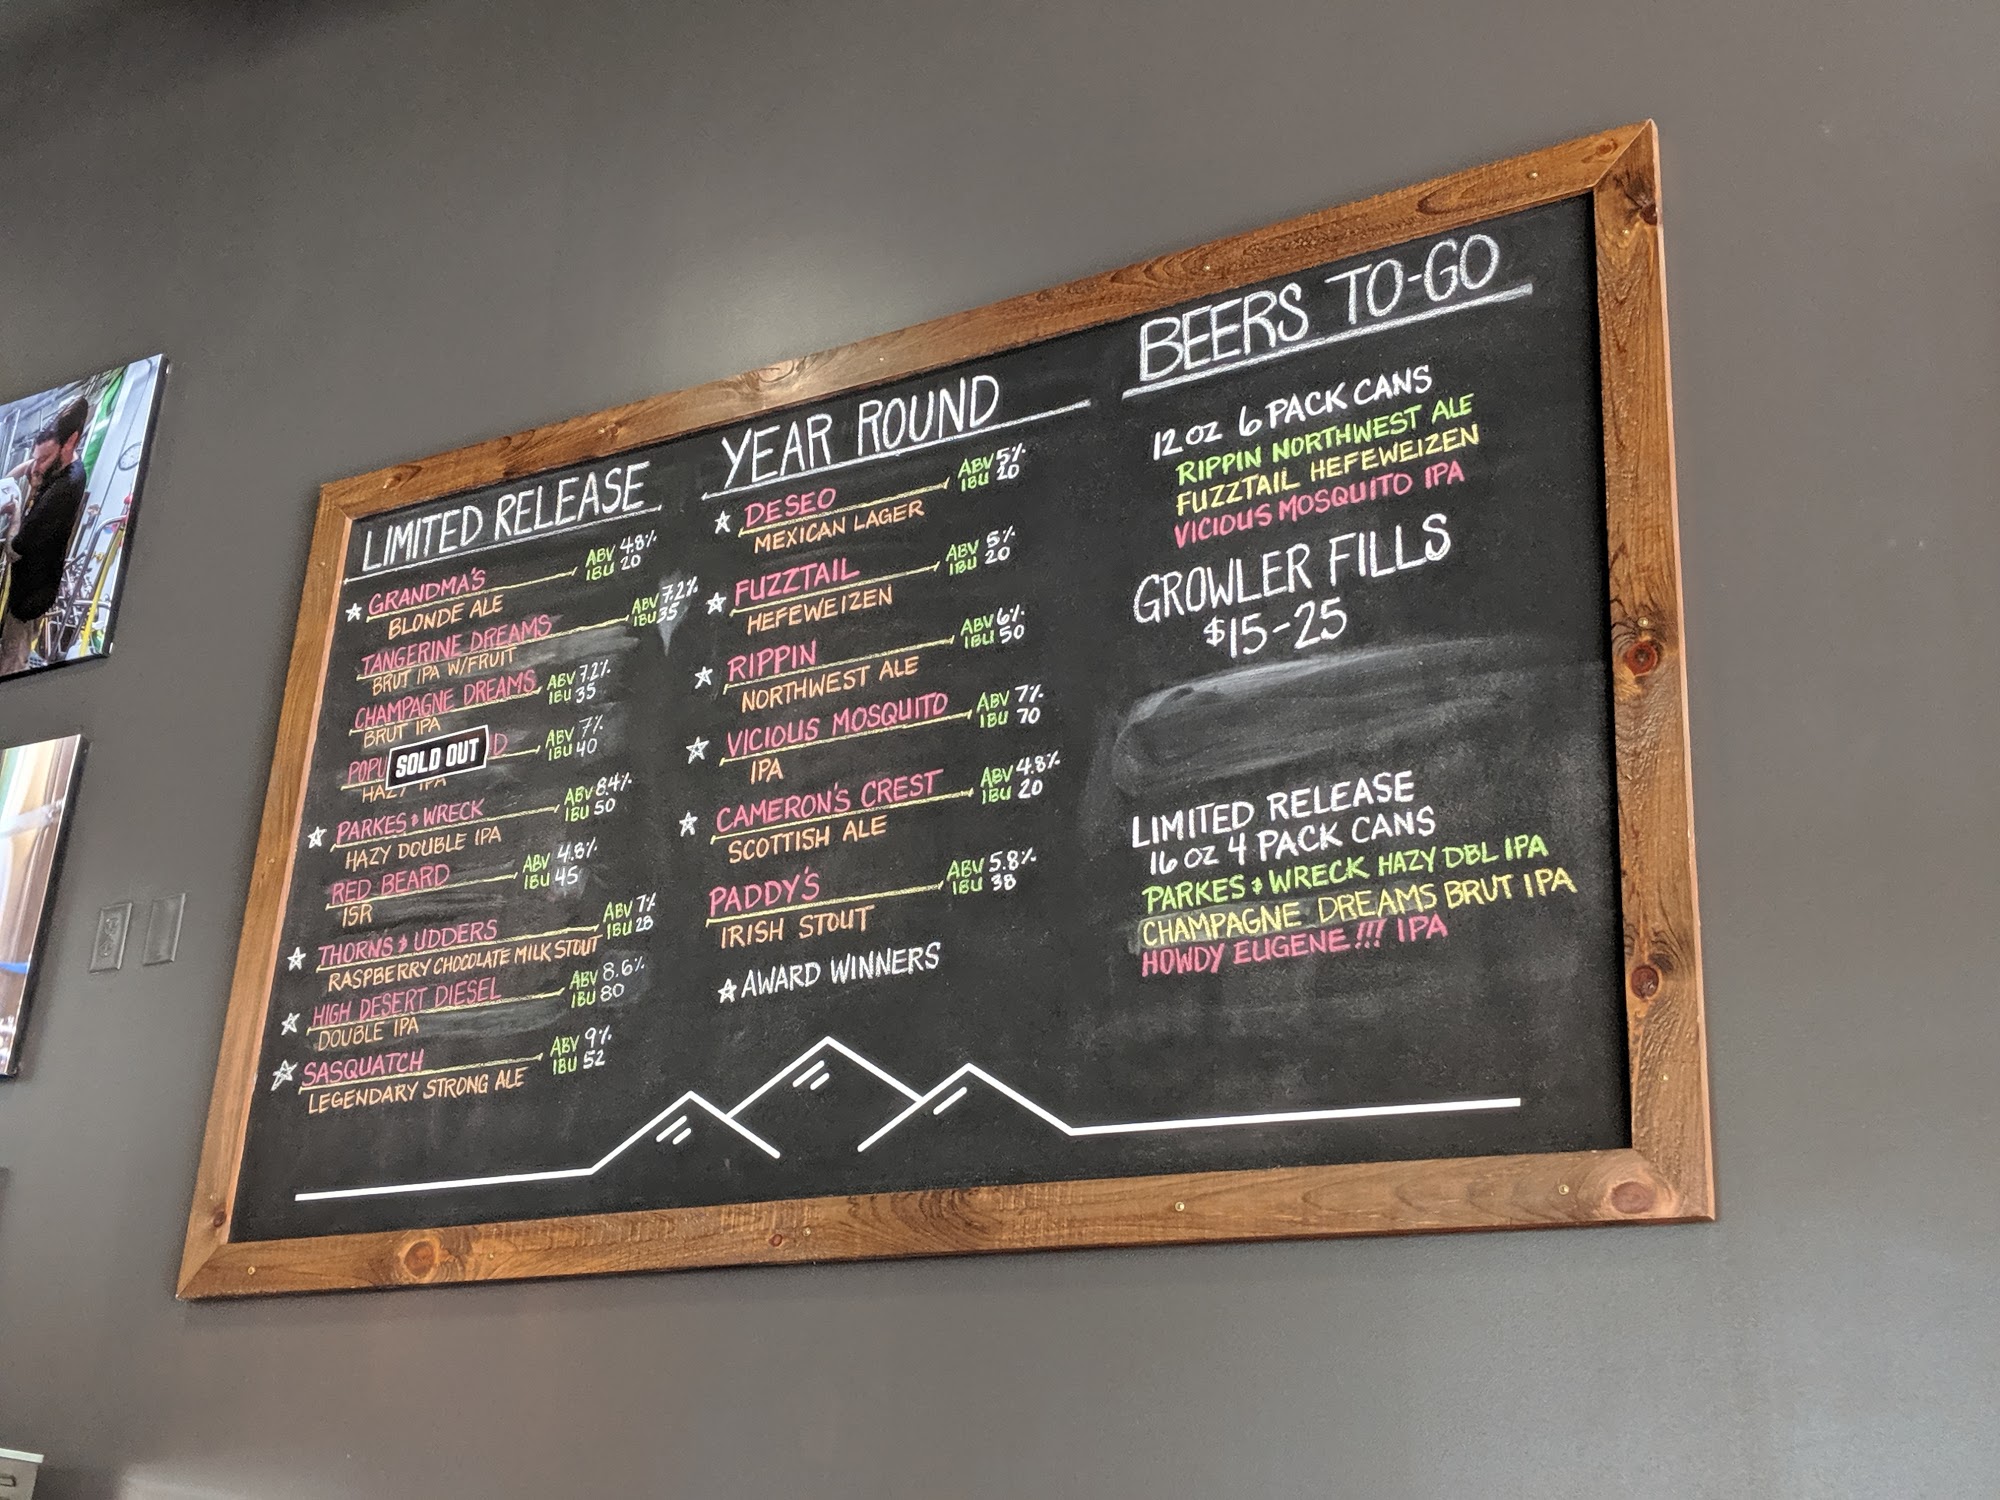 LIMITED RELEASE
GRANDMA'S
ABV 4.8%
IBU 20
BLONDE ALE
TANGERINE DREAMS
ABV 7.2%
IBU 35
BRUT IPA W/FRUIT
CHAMPAGNE DREAMS
ABV 7.2%
IBU 35
BRUT IPA
SOLD OUT
ABV 7%
IBU 40
HAZY IPA
PARKES & WRECK
ABV 8.4%
IBU 50
HAZY DOUBLE IPA
RED BEARD
ABV 4.8%
IBU 45
ISR
THORNS & UDDERS
ABV 7%
IBU 28
RASPBERRY CHOCOLATE MILK STOUT
HIGH DESERT DIESEL
ABV 8.6%
IBU 80
DOUBLE IPA
SASQUATCH
ABV 9%
IBU 52
LEGENDARY STRONG ALE
YEAR ROUND
DESEO
ABV 5%
IBU 20
MEXICAN LAGER
FUZZTAIL
ABV 5%
IBU 20
HEFEWEIZEN
RIPPIN
ABV 6%
IBU 50
NORTHWEST ALE
VICIOUS MOSQUITO
ABV 7%
IBU 70
IPA
CAMERON'S CREST
ABV 4.8%
IBU 20
SCOTTISH ALE
PADDY'S
ABV 5.8%
IBU 38
IRISH STOUT
☆ AWARD WINNERS
BEERS TO-GO
12 OZ 6 PACK CANS
RIPPIN NORTHWEST ALE
FUZZTAIL HEFEWEIZEN
VICIOUS MOSQUITO IPA
GROWLER FILLS
$15-25
LIMITED RELEASE
16 OZ 4 PACK CANS
PARKES & WRECK HAZY DBL IPA
CHAMPAGNE DREAMS BRUT IPA
HOWDY EUGENE!!! IPA